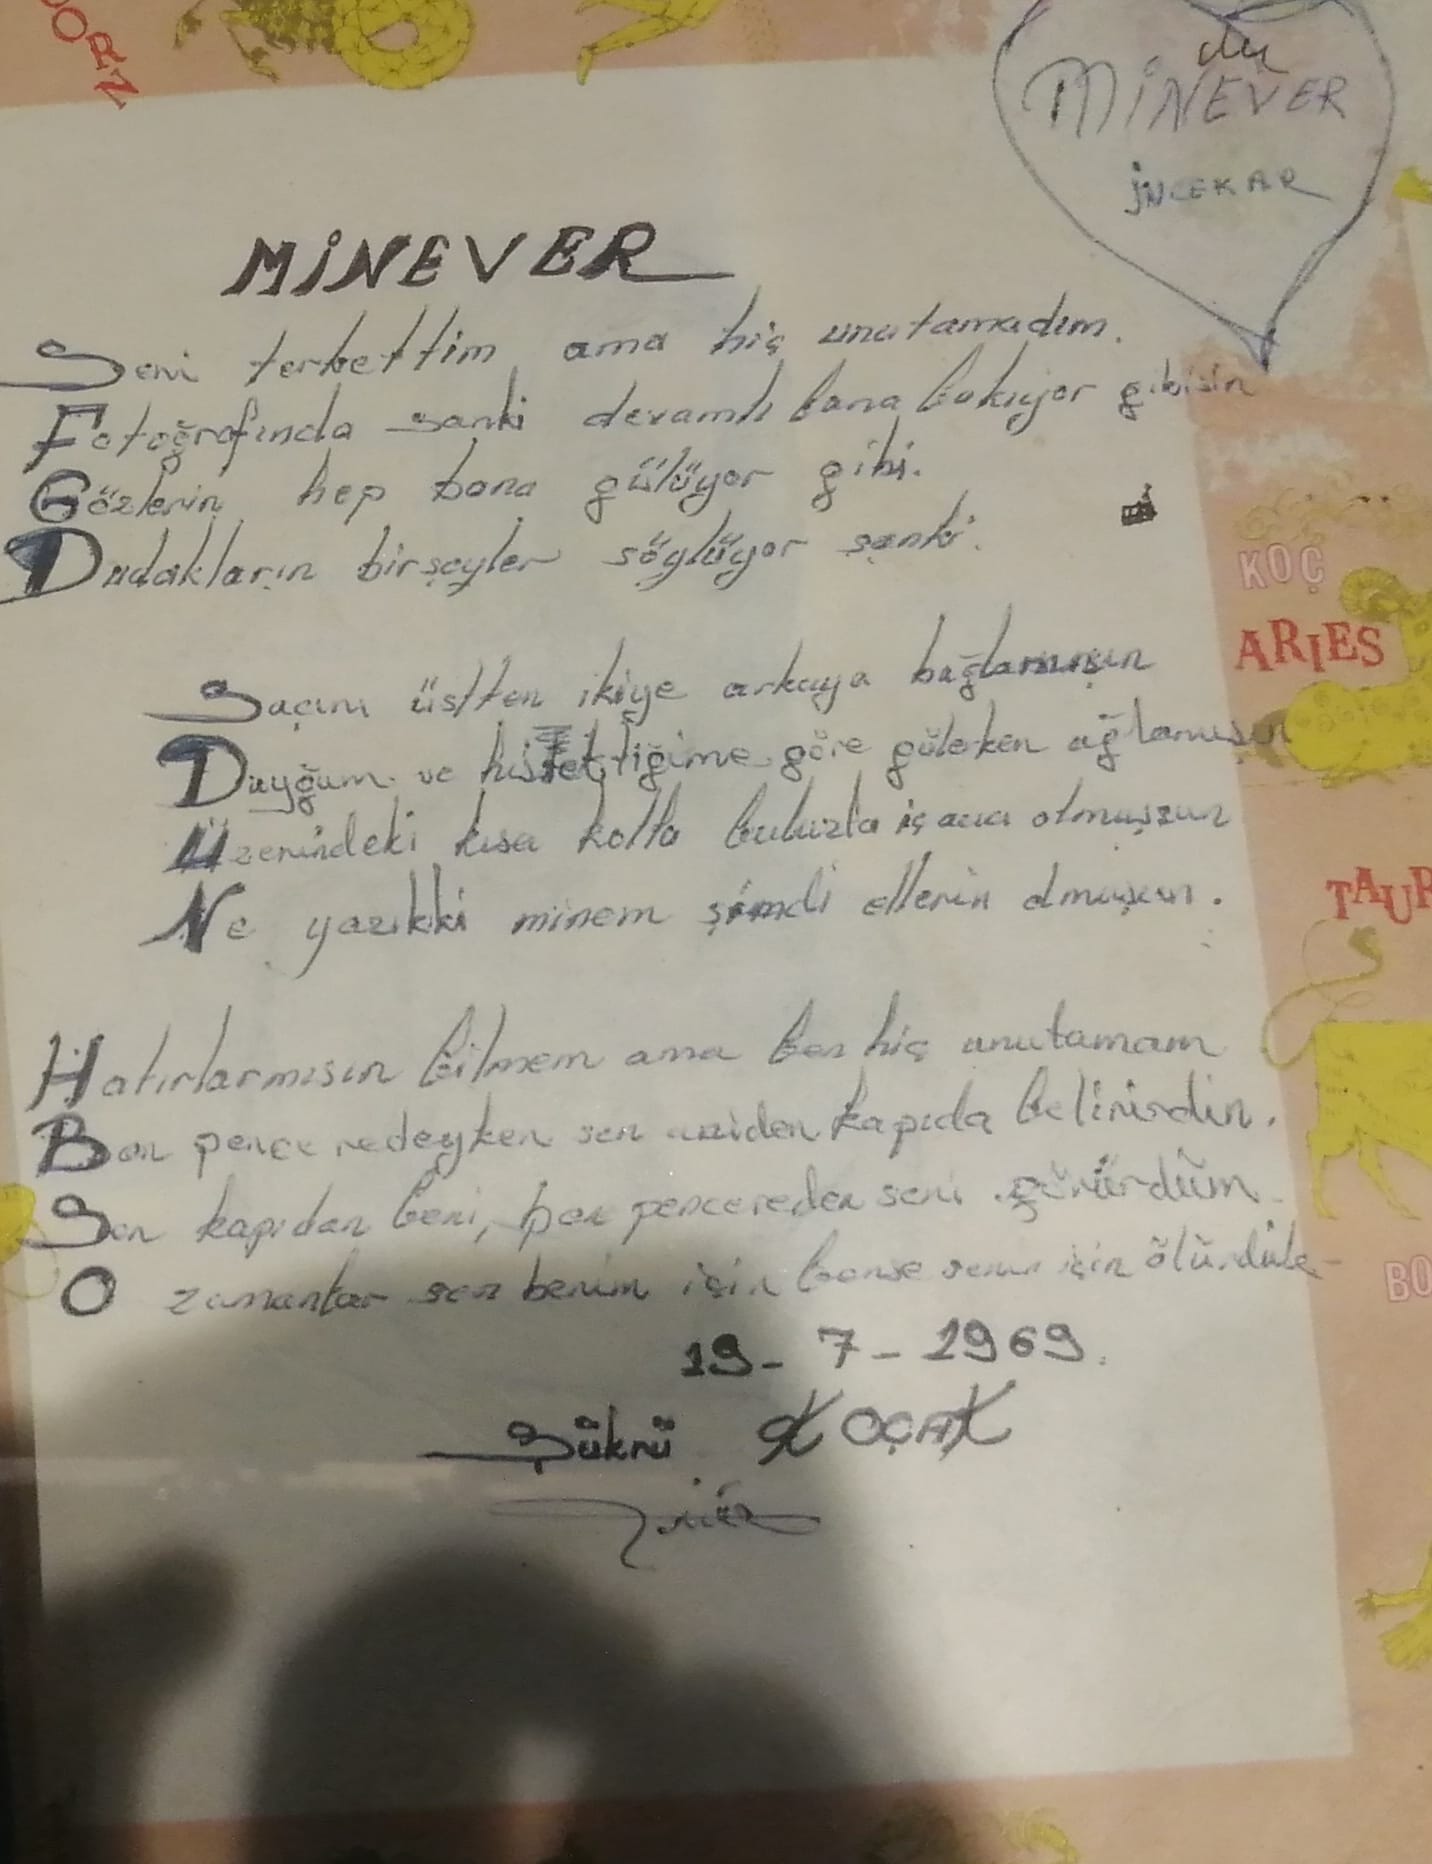 ORN
MİNEVER
İNCEKAR
MİNEVER
Seni terkettim ama hiç unutamadım.
Fotoğrafında sanki devamlı bana bakıyor gibisin
Gözlerin hep bana gülüyor gibi.
Dudakların birşeyler söylüyor sanki.
KOÇ
ARIES
Saçını üstten ikiye arkaya bağlamışsın
Duyğum ve hissettiğime göre gülerken ağlamışsın
Üzerindeki kısa kollu buluzla iç açıcı olmuşsun
Ne yazıkki minem şimdi ellerin olmuşsun.
TAUR
Hatırlarmısın bilmem ama ben hiç unutamam
Ben penceredeyken sen aniden kapıda belirirdin.
Sen kapıdan beni, ben pencereden seni görürdüm
O zamanlar sen benim için bense senin için ölürdük
BO
19-7-1969.
Şükrü KOÇAK